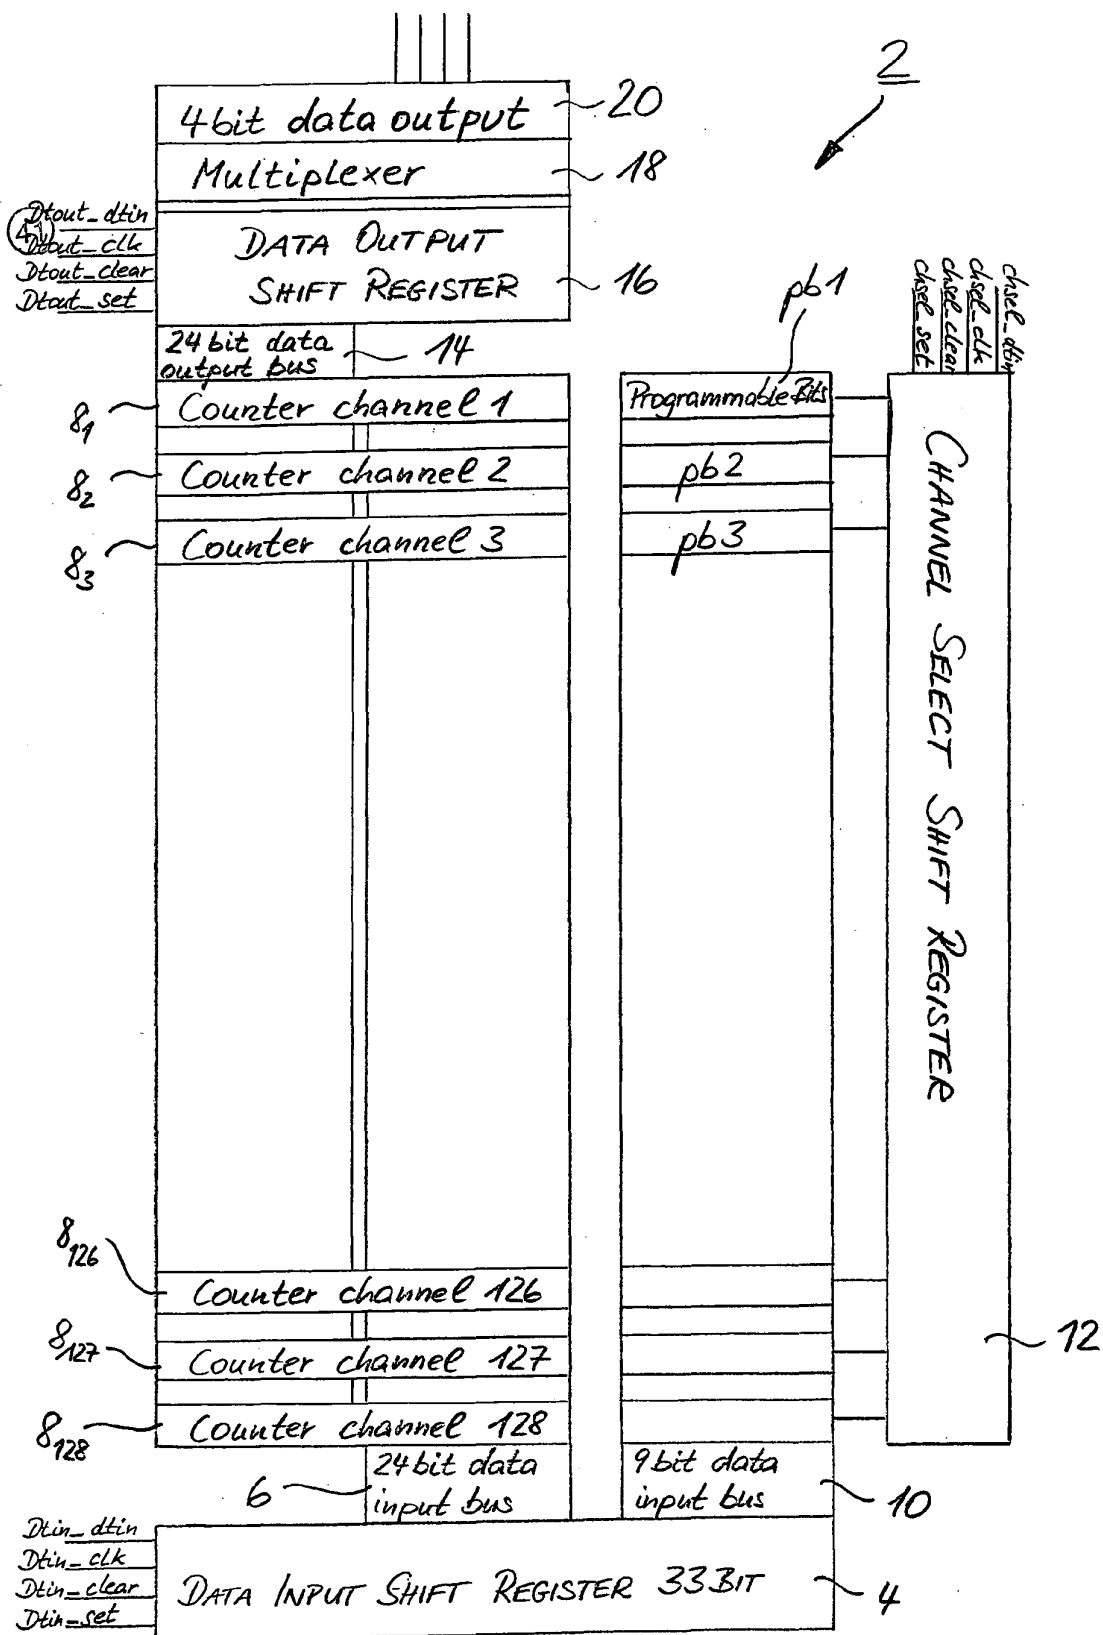 2
4bit data output
20
Multiplexer
18
Dtout_dtin
Dtout_clk
Dtout_clear
Dtout_set
DATA OUTPUT
SHIFT REGISTER
16
pb1
chsel_dtin
chsel_clk
chsel_clear
chsel_set
24 bit data
output bus
14
8₁
Counter channel 1
Programmable Bits
8₂
Counter channel 2
pb2
8₃
Counter channel 3
pb3
CHANNEL SELECT SHIFT REGISTER
8₁₂₆
Counter channel 126
8₁₂₇
Counter channel 127
12
8₁₂₈
Counter channel 128
6
24 bit data
input bus
9 bit data
input bus
10
Dtin_dtin
Dtin_clk
Dtin_clear
Dtin_set
DATA INPUT SHIFT REGISTER 33BIT
4